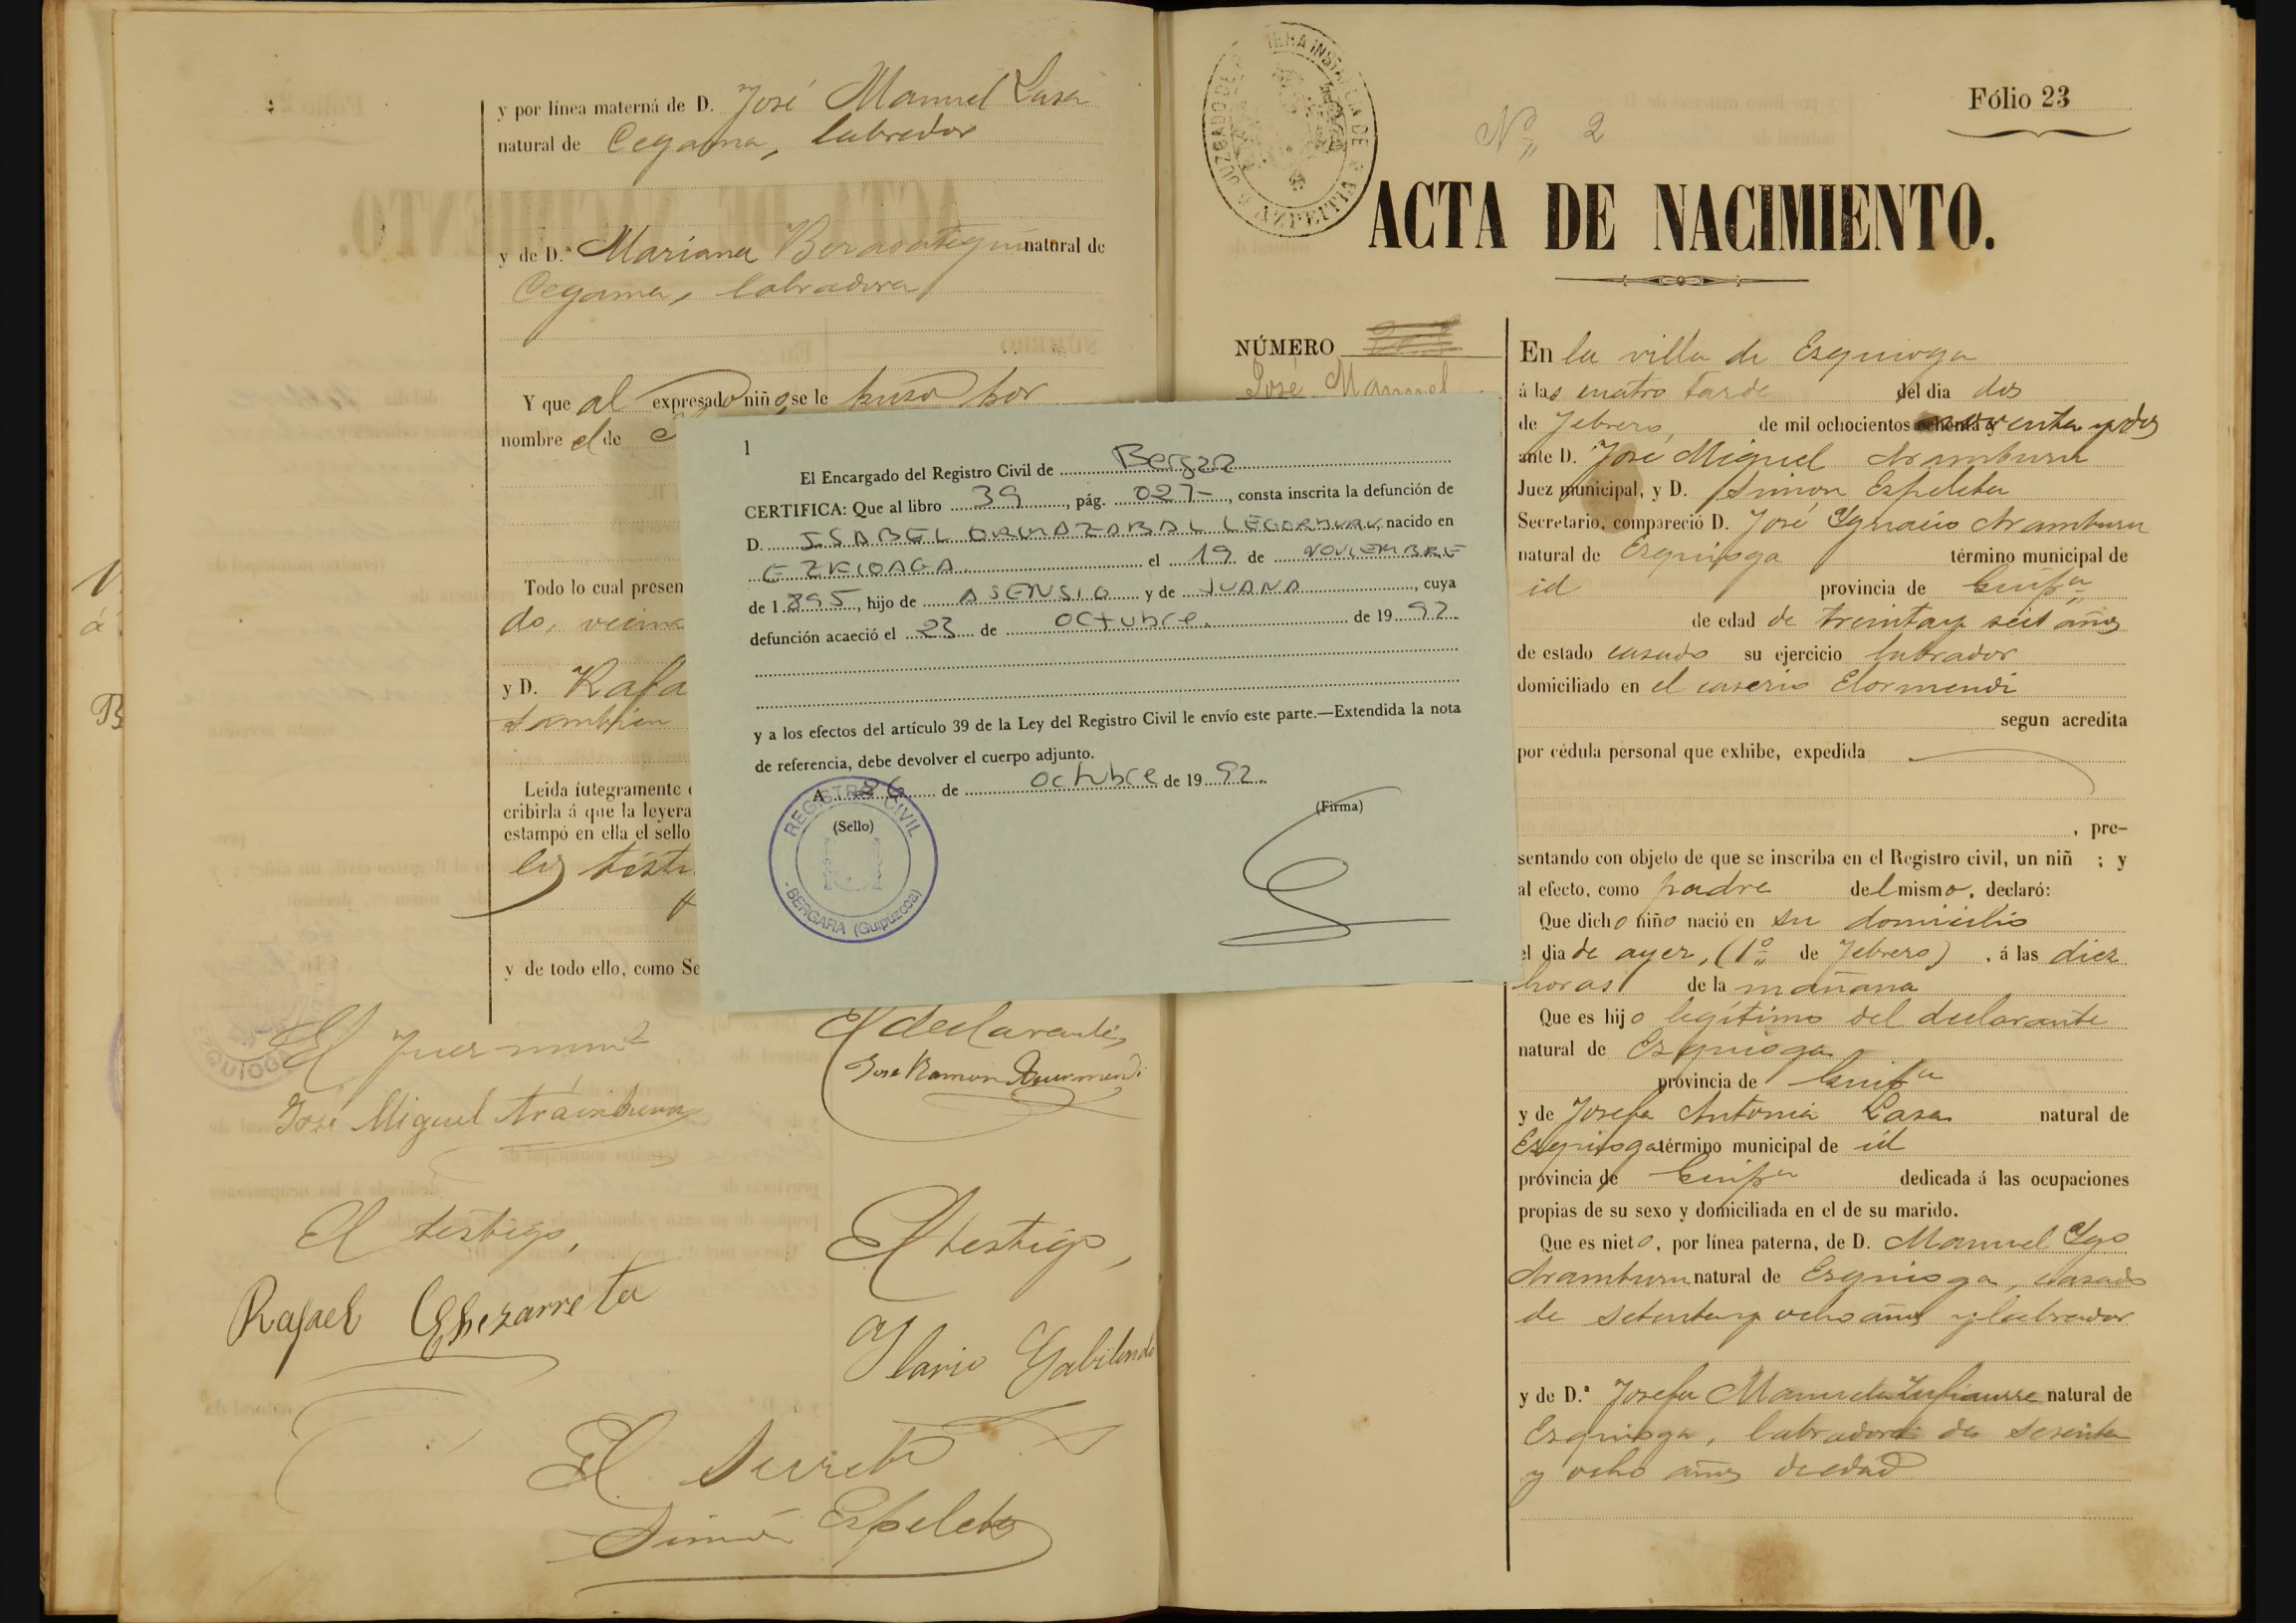 y por línea materna de D. José Manuel Lasa
natural de Cegama, labrador
y de D.ª Mariana Berasategui natural de
Cegama, labradora
Y que al expresado niño, se le puso por
nombre el de
Todo lo cual presen
do, vecino
y D. Rafa
tambien
Leida íntegramente
cribirla á que la leyera
estampó en ella el sello
los testi
y de todo ello, como Se
El Juez mun.l
José Miguel Aramburu
El declarante,
José Ramon Aguirmendi
El testigo,
Rafael Echezarreta
El testigo,
Ylario Gabilondo
El Secret.o
Simón Espeleta
1
El Encargado del Registro Civil de Bergara
CERTIFICA: Que al libro 39, pág. 027-, consta inscrita la defunción de
D. ISABEL ORMAZABAL LEGARBURU, nacido en
EZKIOAGA el 19 de NOVIEMBRE
de 1.895, hijo de ASENSIO y de JUANA, cuya
defunción acaeció el 23 de octubre. de 19 92.
y a los efectos del artículo 39 de la Ley del Registro Civil le envío este parte.—Extendida la nota
de referencia, debe devolver el cuerpo adjunto.
A 26 de octubre de 19 92.
(Sello)
(Firma)
REGISTRO CIVIL
- BERGARA (Guipúzcoa)
JUZGADO DE PRIMERA INSTANCIA DE AZPEITIA
Nº 2
Fólio 23
ACTA DE NACIMIENTO.
NÚMERO
José Manuel
En la villa de Ezquioga
á las cuatro tarde del dia dos
de Febrero, de mil ochocientos noventa y dos
ante D. José Miguel Aramburu
Juez municipal, y D. Simon Espeleta
Secretario, compareció D. José Ygnacio Aramburu
natural de Ezquioga término municipal de
id provincia de Guip.cu
de edad de treinta y seis años
de estado casado su ejercicio labrador
domiciliado en el caserio Elormendi
segun acredita
por cédula personal que exhibe, expedida
, pre-
sentando con objeto de que se inscriba en el Registro civil, un niñ ; y
al efecto, como padre del mismo, declaró:
Que dicho niño nació en su domicilio
el dia de ayer, (1º de Febrero), á las diez
horas de la mañana
Que es hijo legítimo del declarante
natural de Ezquioga
provincia de Guip.cu
y de Josefa Antonia Lasa natural de
Ezquioga término municipal de id
provincia de Guip.cu dedicada á las ocupaciones
propias de su sexo y domiciliada en el de su marido.
Que es nieto, por línea paterna, de D. Manuel Ygo
Aramburu natural de Ezquioga, casado
de setenta y ocho años y labrador
y de D.ª Josefa Manuela natural de
Ezquioga, labradora de sesenta
y ocho años de edad